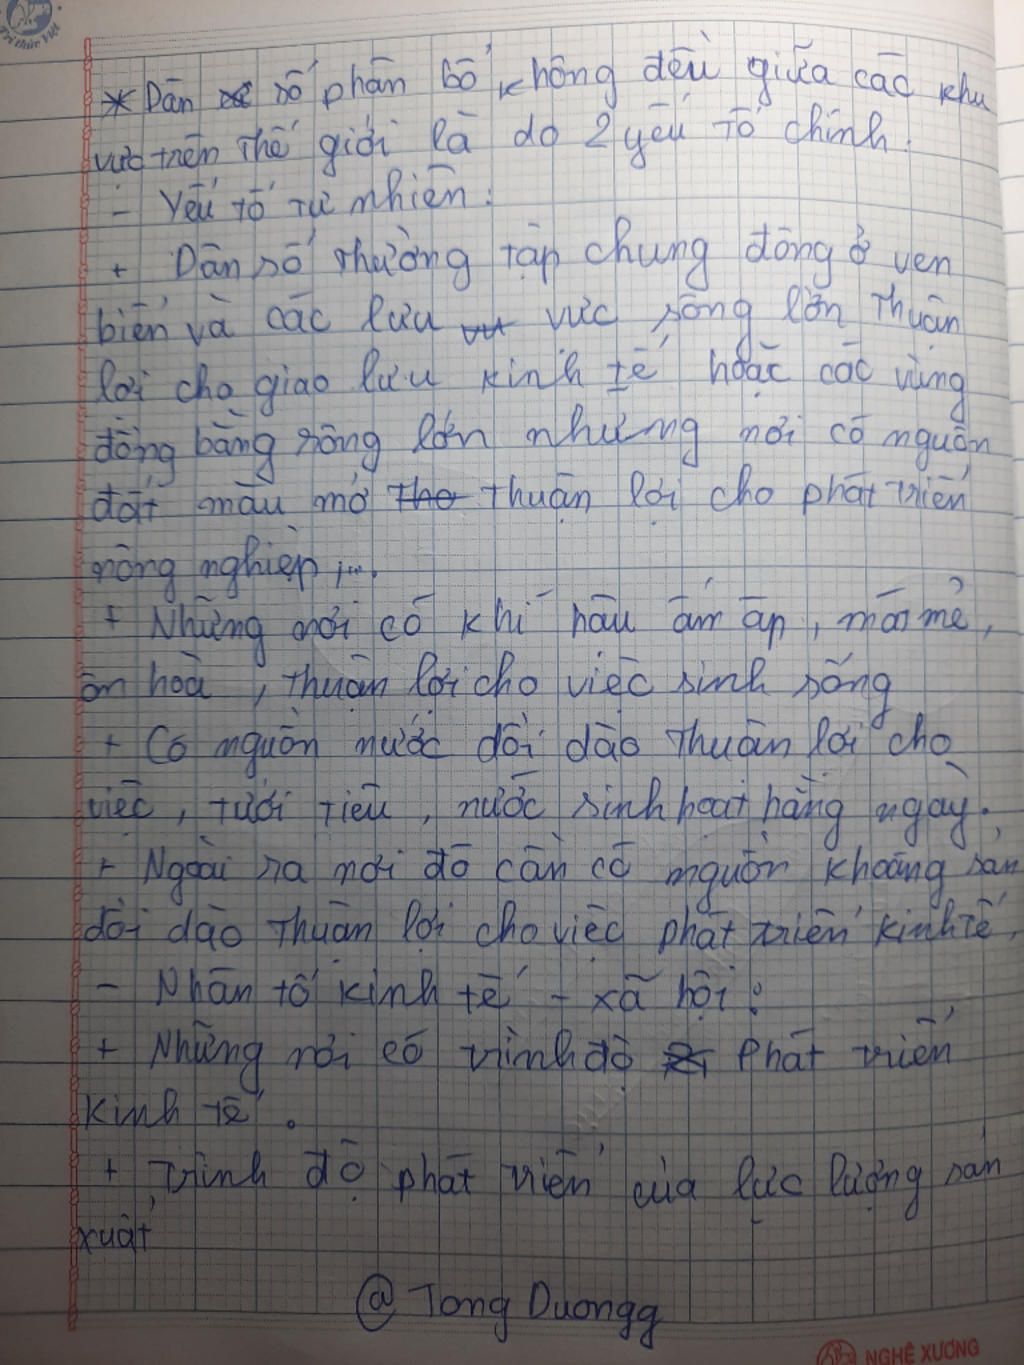 Trí thức Việt
* Dân số phân bố không đều giữa các khu
vực trên thế giới là do 2 yếu tố chính.
- Yếu tố tự nhiên:
+ Dân số thường tập chung đông ở ven
biển và các lưu vực sông lớn thuận
lợi cho giao lưu kinh tế hoặc các vùng
đồng bằng rộng lớn những nơi có nguồn
đất màu mỡ thuận lợi cho phát triển
nông nghiệp,...
+ Những nơi có khí hậu ấm áp, mát mẻ,
ôn hoà, thuận lợi cho việc sinh sống
+ Có nguồn nước dồi dào thuận lợi cho
việc, tưới tiêu, nước sinh hoạt hằng ngày.
+ Ngoài ra nơi đó cần có nguồn khoáng sản
dồi dào thuận lợi cho việc phát triển kinh tế.
- Nhân tố kinh tế - xã hội:
+ Những nơi có trình độ phát triển
kinh tế.
+ trình độ phát triển của lực lượng sản
xuất
@ Tong Duongg
NGHỆ XƯƠNG